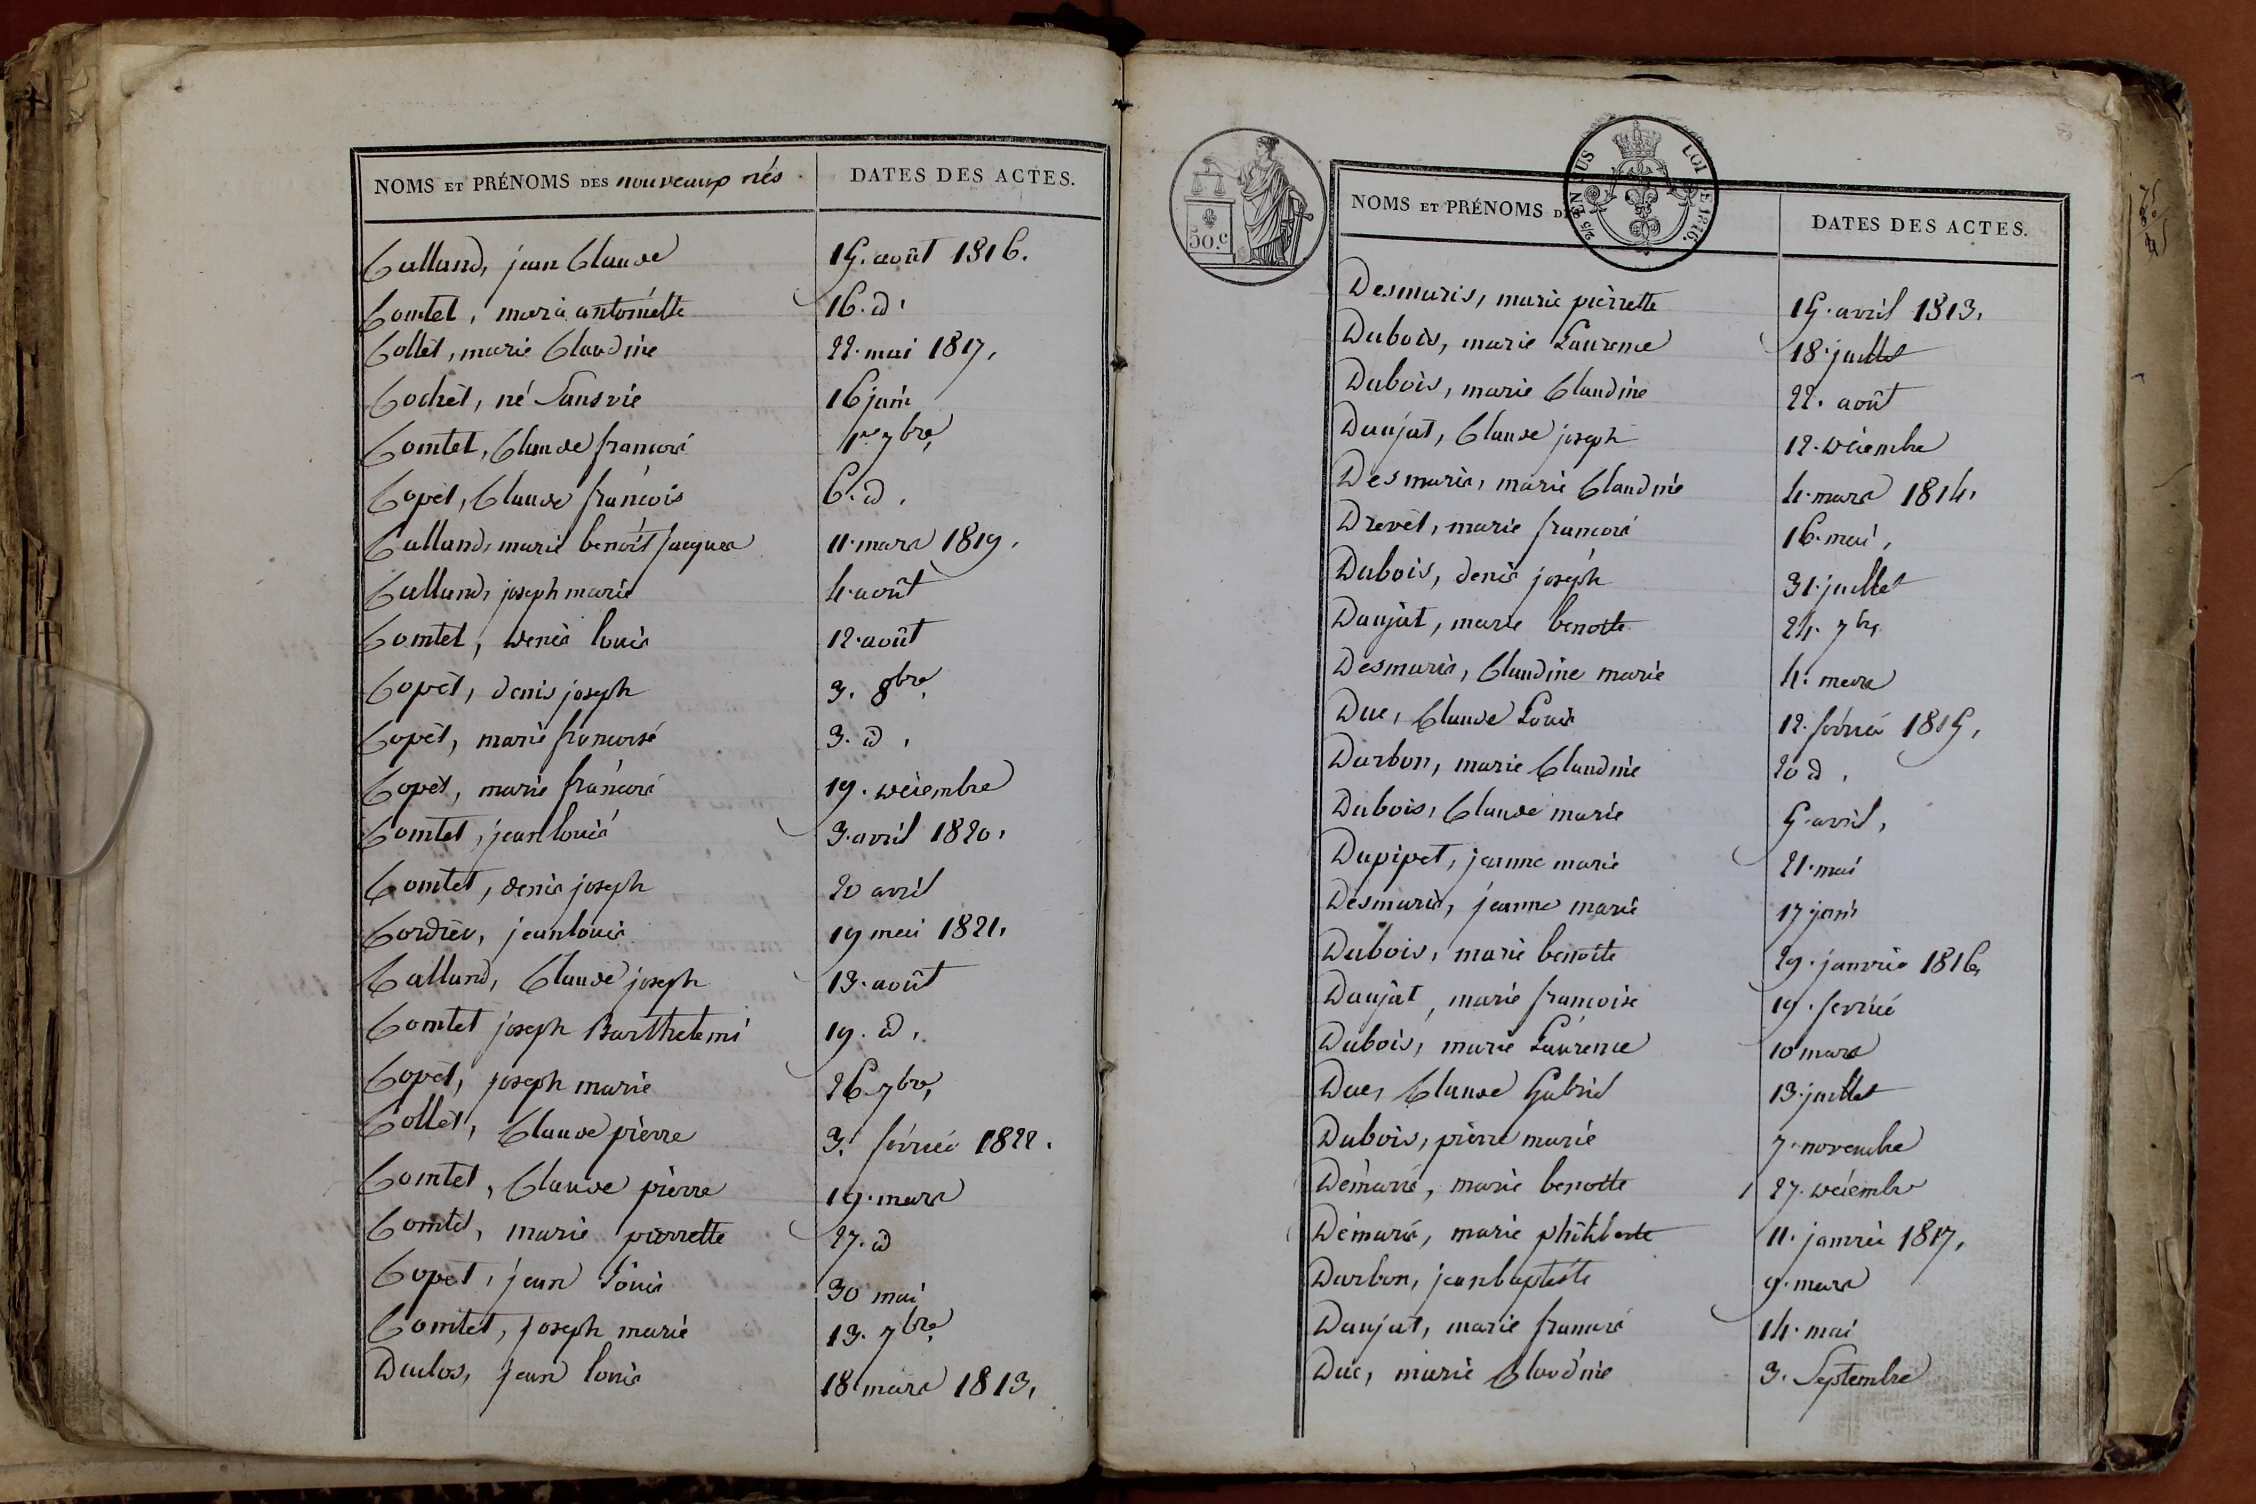 NOMS ET PRÉNOMS DES nouveaux nés. DATES DES ACTES.
Calland, jean Claude 15. août 1816.
Comtet, marie antoinette 16. d.
Collet, marie Claudine 22. mai 1817.
Cochet, né Sans vie 16 juin
Comtet, Claude francois 1er 7bre
Copet, Claude francois 6. d.
Calland, marie benoit Jacques 11. mars 1819.
Calland, joseph marie 4. août
Comtet, denis louis 12. août
Copet, denis joseph 3. 8bre
Copet, marie francoise 3. d.
Copet, marie francois 19. décembre
Comtet, jean louis 3. avril 1820.
Comtet, denis joseph 20 avril
Cordier, jean louis 19 mai 1821.
Calland, Claude joseph 13. août
Comtet joseph Barthelemi 19. d.
Copet, joseph marie 26. 7bre
Collet, Claude pierre 3. février 1822.
Comtet, Claude pierre 19. mars
Comtet, marie pierrette 27. d
Copet, jean Louis 30 mai
Comtet, joseph marie 13. 7bre
Duclos, jean louis 18 mars 1813.
50.c
EN SUS
LOI DE 1816.
NOMS ET PRÉNOMS DES DATES DES ACTES.
Desmaris, marie pierrette 15. avril 1813.
Dubois, marie Laurence 18. juillet
Dubois, marie Claudine 22. août
Daujat, Claude joseph 12. décembre
Desmaris, marie Claudine 4. mars 1814.
Drevet, marie francois 16. mai,
Dubois, denis joseph 31. juillet
Daujat, marie benoite 24. 7bre
Desmaris, Claudine marie 4. mars
Duc, Claude Louis 12. février 1815.
Darbon, marie Claudine 20 d.
Dubois, Claude marie 5. avril,
Dupipet, jeanne marie 21. mai
Desmaris, jeanne marie 17 juin
Dubois, marie benoite 29. janvier 1816.
Daujat, marie francoise 19. fevrier
Dubois, marie Laurence 10 mars
Duc, Claude Gabriel 13. juillet
Dubois, pierre marie 7. novembre
Démaris, marie benoite 27. décembre
Démaris, marie philiberte 11. janvier 1817.
Darbon, jean baptiste 9. mars
Daujat, marie francois 14. mai
Duc, marie Claudine 3. Septembre